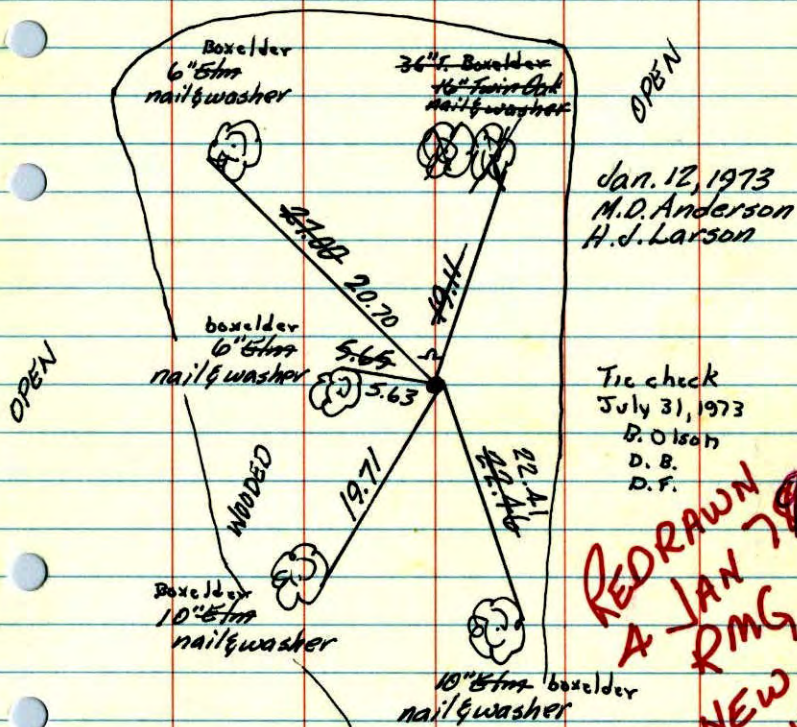 Boxelder
6" Elm
nail & washer
36" T. Boxelder
16" Twin Oak
nail & washer
OPEN
Jan. 12, 1973
M.D. Anderson
H.J. Larson
20.70
19.11
boxelder
6" Elm
nail & washer
5.65
5.63
OPEN
Tie check
July 31, 1973
B. Olson
D. B.
D. F.
WOODED
19.71
22.41
22.46
Boxelder
10" Elm
nail & washer
10" Elm boxelder
nail & washer
REDRAWN
4 JAN 78
RMG
NEW